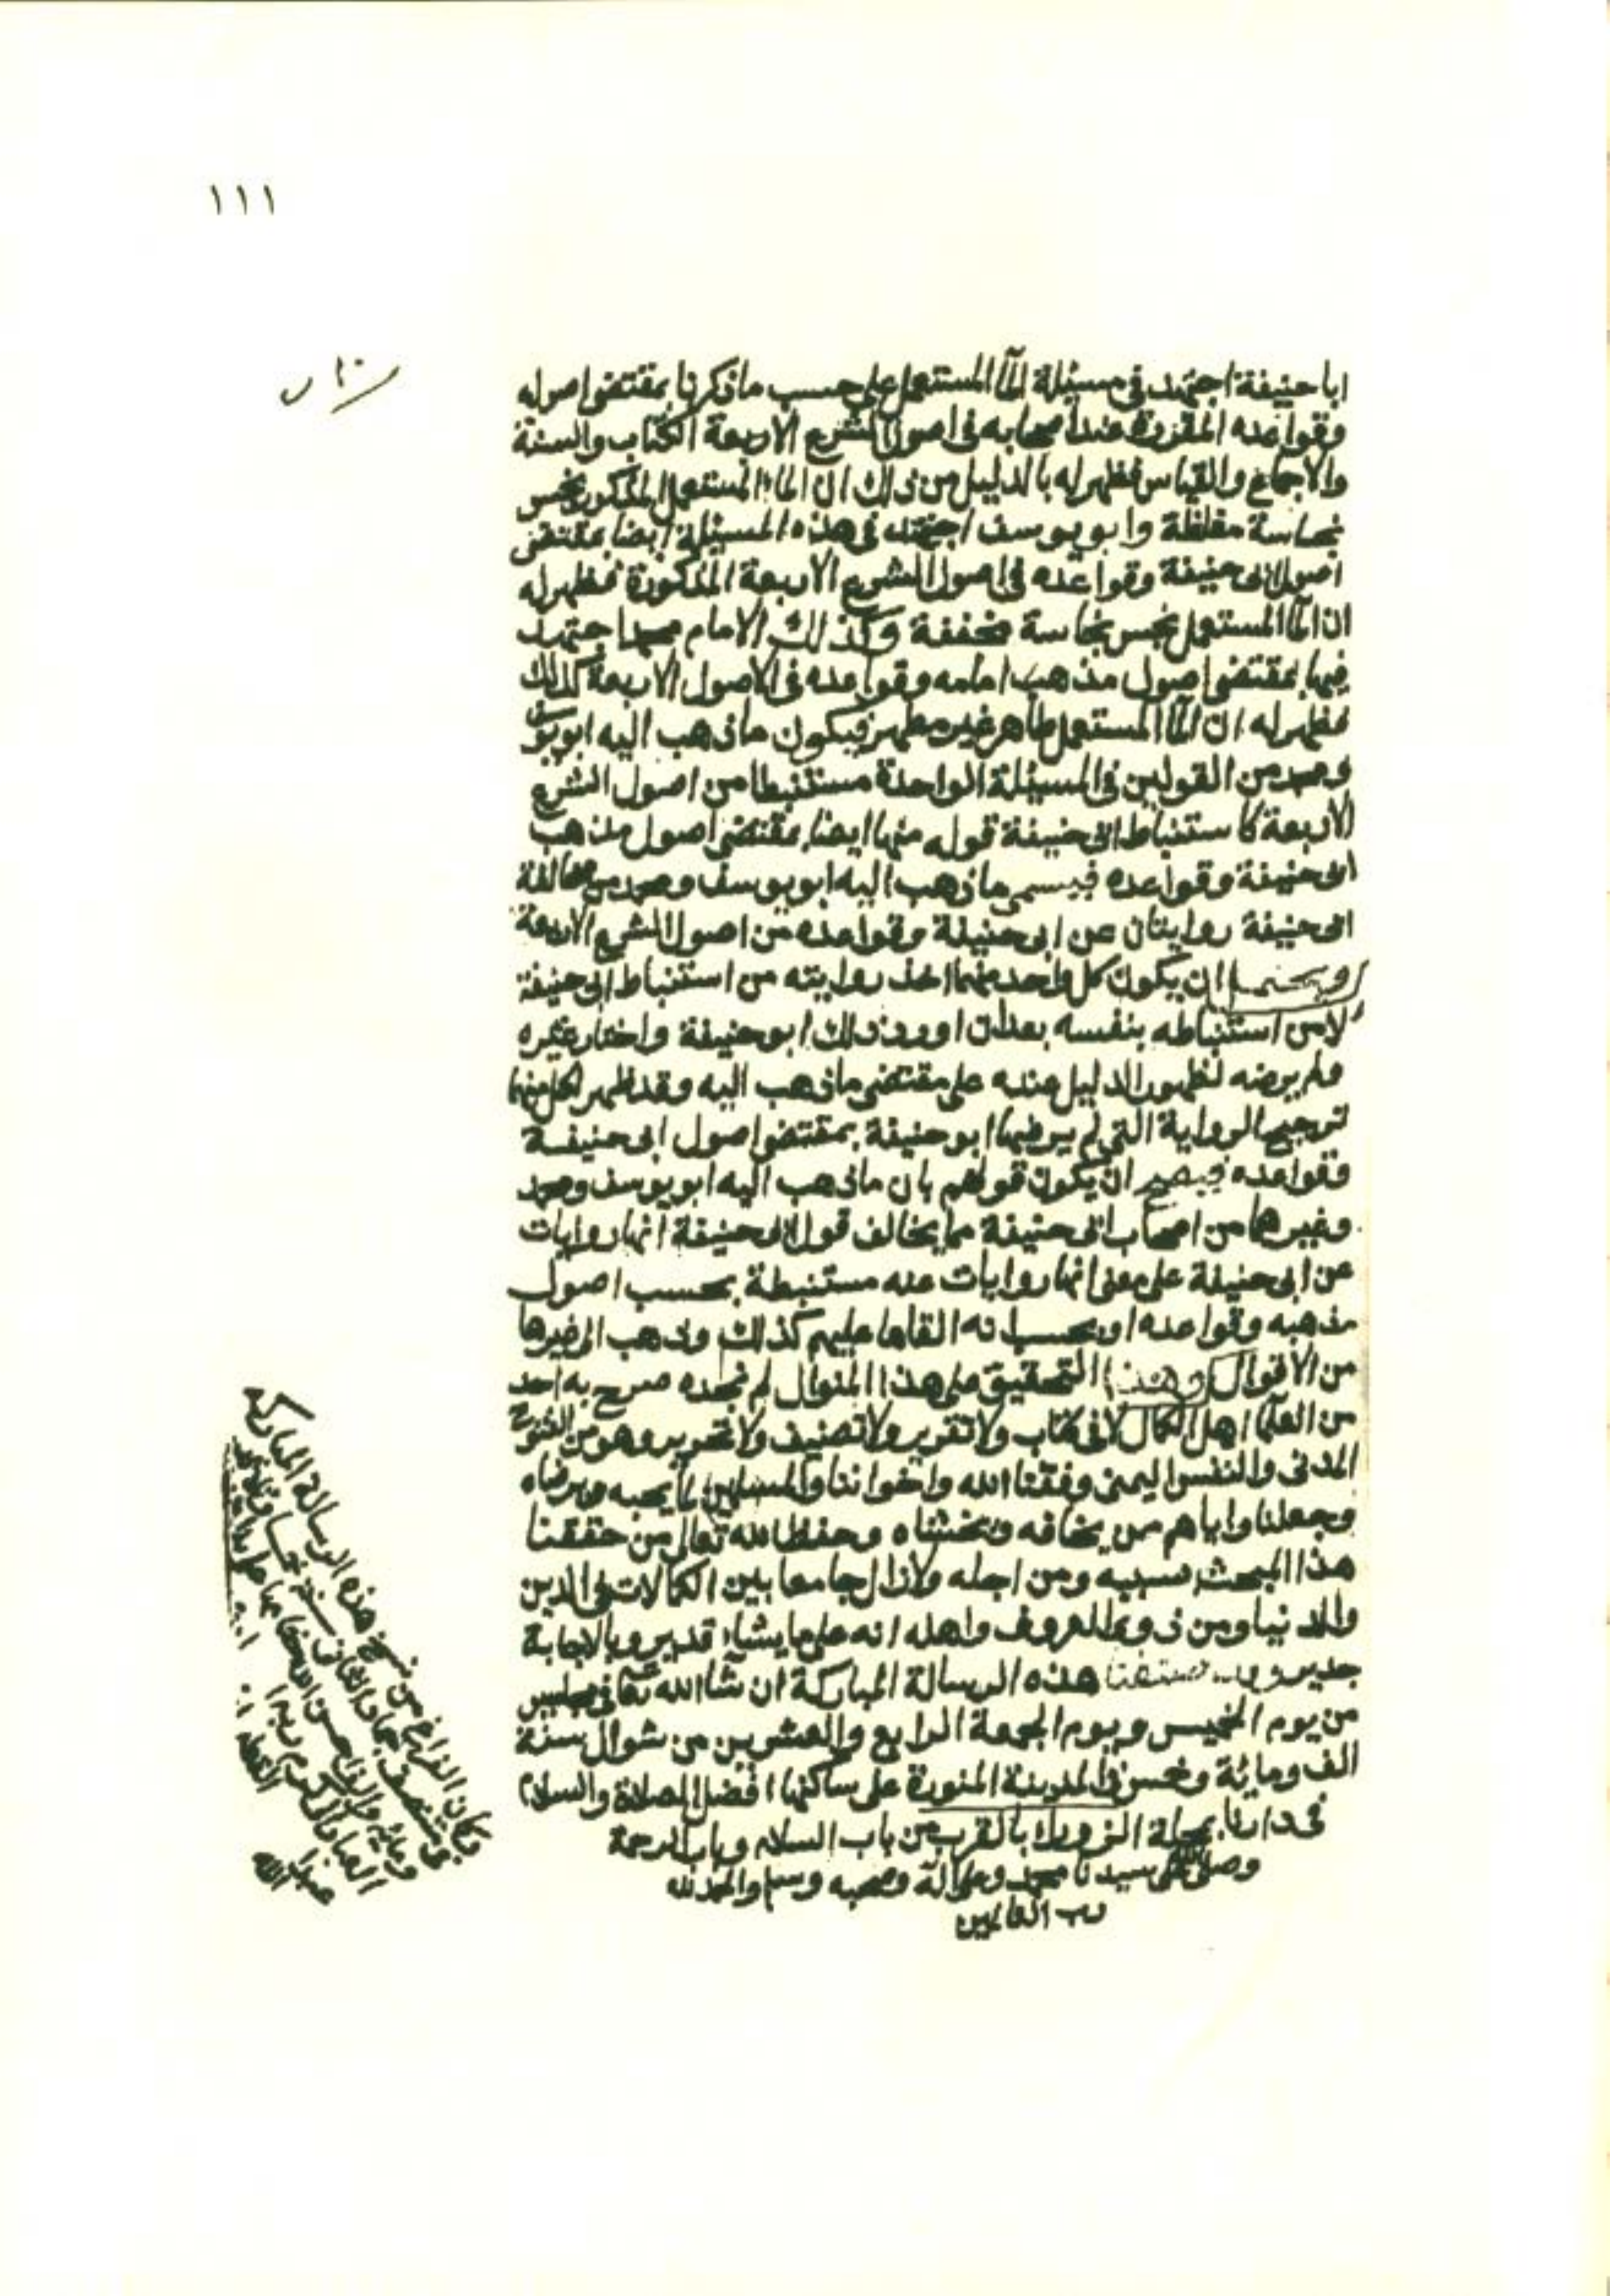 ١١١
ابا حنيفة اجتهد في مسئلة المآ المستعمل على حسب ما ذكرنا بمقتضى اصوله
وقواعده المقررة عند اصحابه في اصول الشرع الاربعة الكتاب والسنة
والاجماع والقياس فظهر له بالدليل من ذلك ان الماء المستعمل المذكور نجس
نجاسة مغلظة وابو يوسف اجتهد في هذه المسئلة ايضا بمقتضى
اصول ابى حنيفة وقواعده في اصول الشرع الاربعة المذكورة فظهر له
ان المآ المستعمل نجس نجاسة مخففة وكذلك الامام محمد اجتهد
فيها بمقتضى اصول مذهب امامه وقواعده في الاصول الاربعة كذلك
فظهر له ان المآ المستعمل طاهر غير مطهر فيكون ما ذهب اليه ابو يوسف
ومحمد من القولين في المسئلة الواحدة مستنبطا من اصول الشرع
الاربعة كاستنباط ابى حنيفة قوله منها ايضا بمقتضى اصول مذهب
ابى حنيفة وقواعده فيسمى ما ذهب اليه ابو يوسف ومحمد من مخالفة
ابى حنيفة روايتان عن ابى حنيفة وقواعده من اصول الشرع الاربعة
ويحتمل ان يكون كل واحد منهما اخذ روايته من استنباط ابى حنيفة
لا من استنباطه بنفسه بعد ان اورد ذلك ابو حنيفة واختار غيره
ولم يرضه لظهور الدليل عنده على مقتضى ما ذهب اليه وقد ظهر لكل منهما
ترجيح الرواية التي لم يرضها ابو حنيفة بمقتضى اصول ابى حنيفة
وقواعده فيصح ان يكون قولهم بان ما ذهب اليه ابو يوسف ومحمد
وغيرهما من اصحاب ابى حنيفة مما يخالف قول ابى حنيفة انها روايات
عن ابى حنيفة على معنى انها روايات عنه مستنبطة بحسب اصول
مذهبه وقواعده او بحسب انه القاها عليهم كذلك وذهب الى غيرها
من الاقوال وهذا التحقيق على هذا المنوال لم نجده صرح به احد
من العلمآ اهل الكمال لا في كتاب ولا تقرير ولا تصنيف ولا تحرير وهو من الفتوح
المدنى والنفس اليمنى وفقنا الله واخواننا والمسلمين لما يحبه ويرضاه
وجعلنا واياهم ممن يخافه ويخشاه وحفظ الله تعالى من حققنا
هذا المبحث بسببه ومن اجله ولا زال جامعا بين الكمالات في الدين
والدنيا ومن ذوى المعروف واهله انه على ما يشاء قدير وبالاجابة
جدير وقد صنفنا هذه الرسالة المباركة ان شآ الله تعالى في مجلسين
من يوم الخميس ويوم الجمعة الرابع والعشرين من شوال سنة
الف ومائة وخمس في المدينة المنورة على ساكنها افضل الصلاة والسلام
في دارنا بمحلة بالقرب من باب السلام وباب الرحمة
وصلى الله على سيدنا محمد وعلى آله وصحبه وسلم والحمد لله
رب العالمين
وكان الفراغ من نسخ هذه الرسالة المباركة